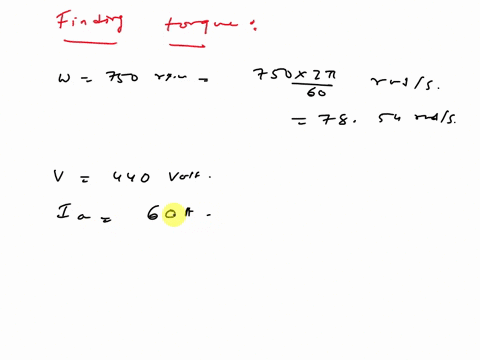 Finding torque:
w = 750 rpm = 750 x 2π / 60 rad/s.
= 78. 54 rad/s.
V = 440 Volt.
Ia = 60 A.